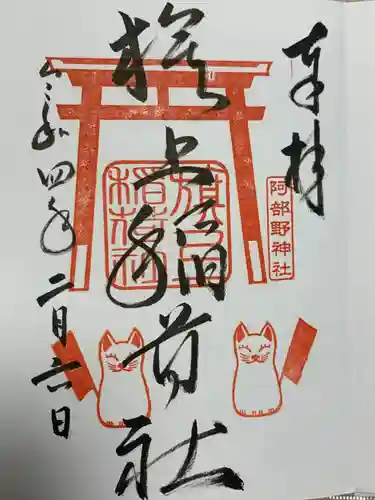 奉拝
阿部野神社
旗上稲荷社
令和四年二月六日